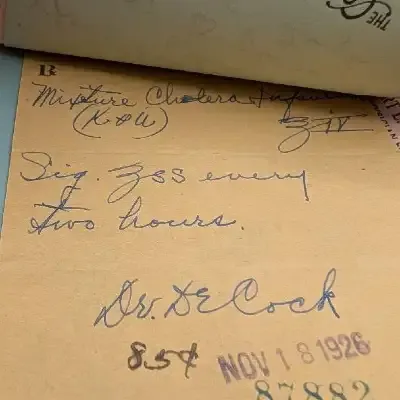 THE
℞
Mixture Cholera
(K & U)
ʒiv
Sig. ʒss every
two hours.
Dr. DE Cock
85¢ NOV 18 1926
87882